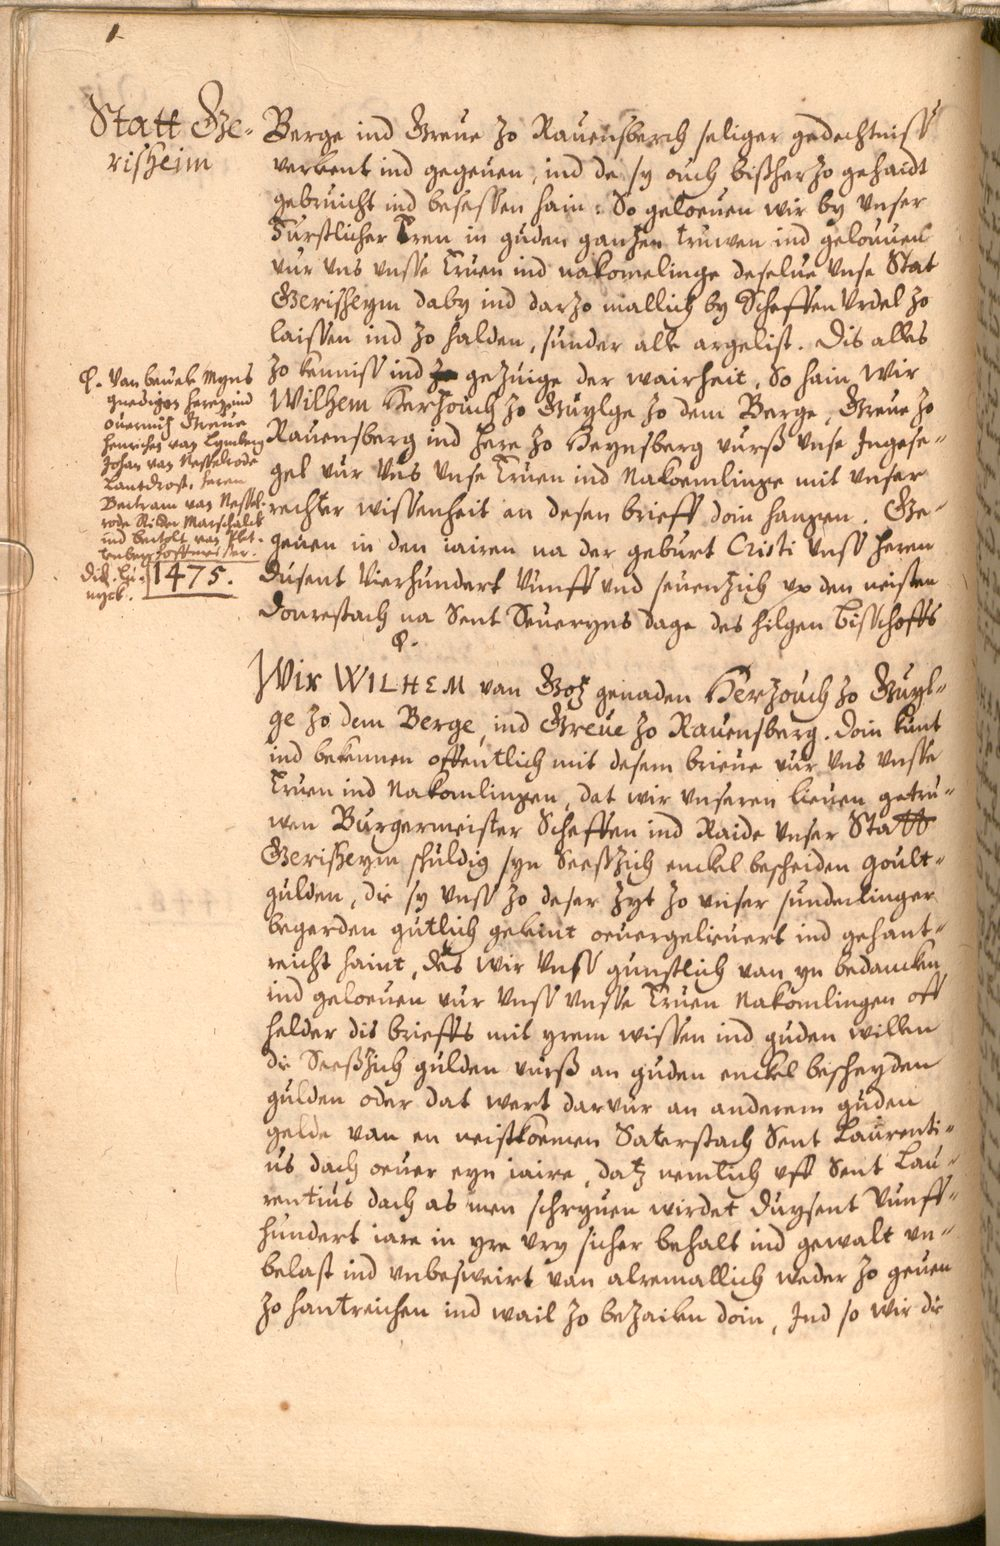 1
Statt Ge-
risheim
Berge ind Greue zo Rauensberch seliger gedechtniss
verleent ind gegeuen, ind de sy ouch bissher zo gehaidt
gebruicht ind besessen hain: So geloeuen wir by vnser
Furstlicher Eren in guden gantzen truwen ind gelouuen
vur vns vnsse Eruen ind nakomelinge deselue vnse Stat
Gerisheym daby ind darzo mallich by Scheffen Vrdel zo
laissen ind zo halden, sunder alle argelist. Dis alles
zo kenniss ind gezuige der wairheit, So hain wir
Wilhem Hertzouch zo Guylge zo dem Berge, Greue zo
Rauensberg ind Here zo Heynsberg vurß vnse Ingese-
gel vur vns vnse Eruen ind Nakoemlinge mit vnser
rechter wissenheit an desen brieff doin hangen. Ge-
geuen in den iairen na der geburt Cristi vnss heren
Dusent Vierhundert Vunff vnd seuentzich vp den neisten
Donrestach na Sent Seueryns dage des hilgen Bisschoffs
&.
&. Van beuele Myns
gnedigen heren ind
ouermitz Greue
Henrichs van Lymberg
Johan van Nesselrode
Lantdrost, heren
Bertram van Nessel-
rode Ritter Marschalck
ind Bertolt van Plet-
tenberg Hoffmeister.
Dick. Lü-
nyck. 1475.
Wir WILHEM van Gotz genaden Hertzouch zo Guyl-
ge zo dem Berge, ind Greue zo Rauensberg. Doin kunt
ind bekennen offentlich mit desem brieue vur vns vnsse
Eruen ind Nakomlingen, dat wir vnseren lieuen getru-
wen Burgermeister Scheffen ind Raide vnser Statt
Gerisheym schuldig syn Seesszich enckel bescheiden goult-
gulden, die sy vnss zo deser zyt zo vnser sunderlinger
begerden gutlich geleint oeuergelieuert ind gehant-
reicht haint, des wir vnss gunstlich van yn bedancken
ind geloeuen vur vnss vnsse Eruen Nakomlingen off
helder dis brieffs mit yrem wissen ind guden willen
die Seesszich gulden vurß an guden enckel bescheyden
gulden oder dat wert darvur an anderem guden
gelde van en neistkoemen Saterstach Sent Laurenti-
us dach oeuer eyn iaire, datz nemlich vff Sent Lau-
rentius dach as men schryuen wirdet Duysent Vunff-
hundert iare in yre vry sicher behalt ind gewalt vn-
belast ind vnbesweirt van alremallich weder zo geuen
zo hantreichen ind wail zo bezailen doin, Ind so wir die